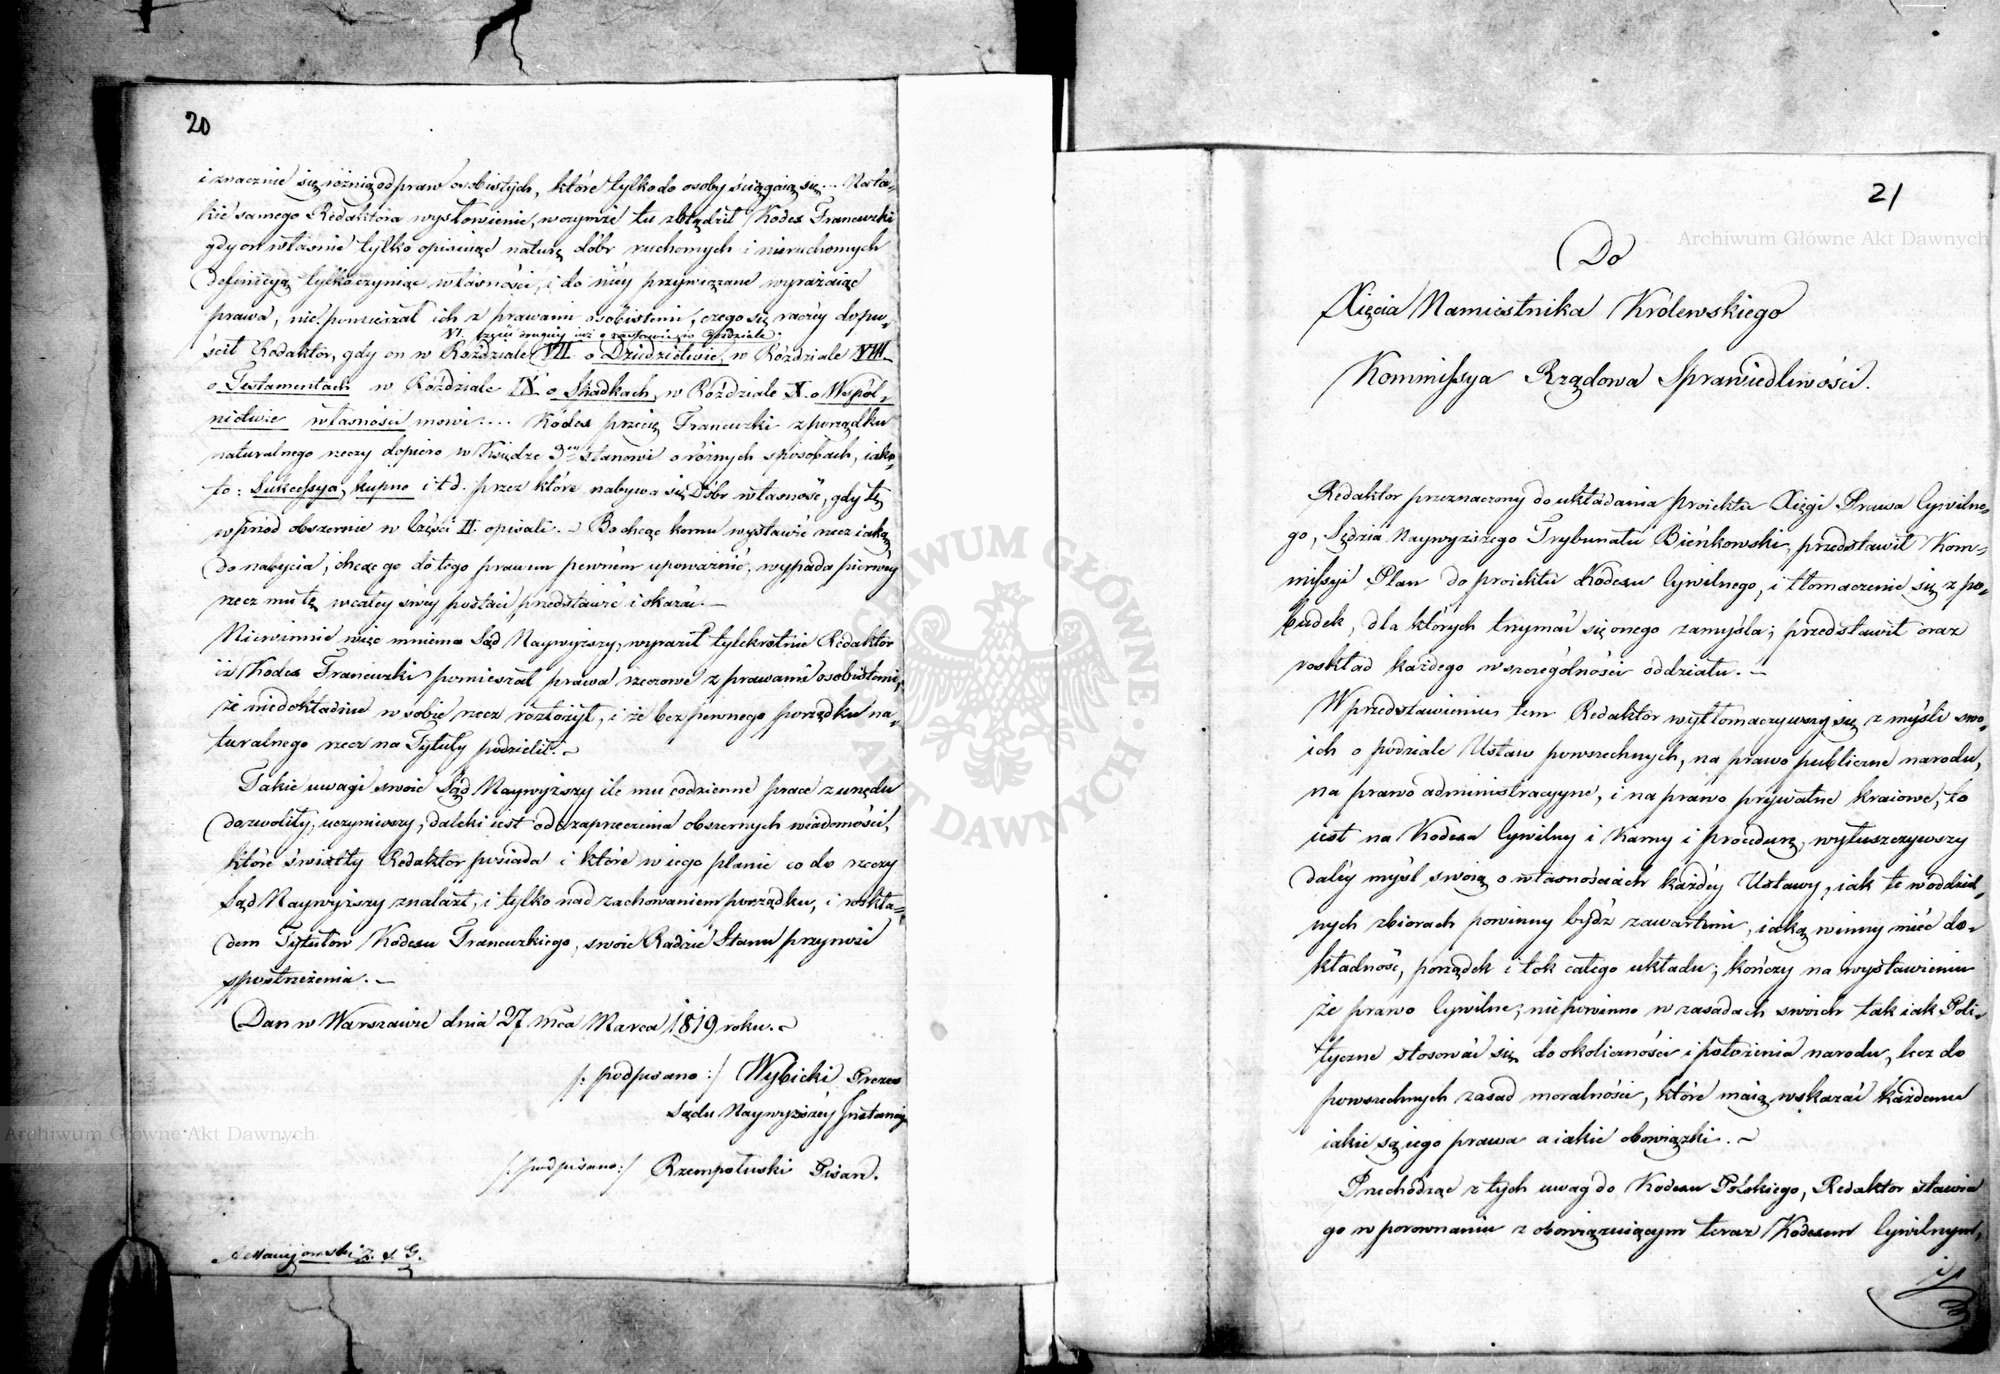 20
i znacznie się różnią od praw osobistych, które tylko do osoby ściągaią się... Na ta-
kie samego Redaktora wysłowienie, w czymże tu zbłądził Kodex Francuzki
gdy on właśnie tylko opisuiąc naturę dóbr ruchomych i nieruchomych
definicyą tylko czyniąc własności, i do niey przywiązane wyrażaiąc
prawa, nie pomieszał ich z prawami osobistemi, czego się raczey dopu-
VI. części drugiey iuż o zastawie, w Rozdziale
ścił Redaktor, gdy on w Rozdziale VII o Dziedzictwie, w Rozdziale VIII
o Testamentach w Rozdziale IX o Spadkach, w Rozdziale X. o Wspól-
nictwie własności mowi.... Kodex przecię Francuzki z porządku
naturalnego rzeczy dopiero w Księdze 3ey stanowi o różnych sposobach, iako
to: Sukcessya, kupno i t d. przez które nabywa się Dóbr własność, gdy tę
wprzód obszernie w Części II. opisali. – Bo chcąc komu wystawić rzecz iaką
do nabycia, chcąc go do tego prawem pewnem upoważnić, wypada pierwey
rzecz mu tę w całey swey postaci przedstawić i okazać. –
Niewinnie więc mniema Sąd Naywyższy, wyraził tylekrotnie Redaktor
iż Kodex Francuzki pomieszał prawa rzeczowe z prawami osobistemi,
że niedokładnie w sobie rzecz rozłożył, i że bez pewnego porządku na-
turalnego rzecz na Tytuły podzielił. –
Takie uwagi swoie Sąd Naywyższy ile mu codzienne prace z urzędu
dozwoliły, uczyniwszy, daleki iest od zaprzeczenia obszernych wiadomości,
które światły Redaktor posiada i które w iego planie co do rzeczy
Sąd Naywyższy znalazł, i tylko nad zachowaniem porządku, i rozkła-
dem Tytułów Kodexu Francuzkiego, swoie Radzie Stanu przynosi
spostrzeżenia. –
Dan w Warszawie dnia 27 mca Marca 1819 roku. –
/: podpisano :/ Wybicki Prezes
Sądu Naywyższey Instancyi
/: podpisano :/ Rzempołuski Pisarz.
21
Do
Xięcia Namiestnika Królewskiego
Kommissya Rządowa Sprawiedliwości.
Redaktor przeznaczony do układania proiektu Xięgi Prawa Cywilne-
go, Sędzia Naywyższego Trybunału Bieńkowski, przedstawił Kom-
missyi Plan do proiektu Kodexu Cywilnego, i tłomaczenie się z po-
budek, dla których trzymać się onego zamyśla; przedstawił oraz
roskład każdego w szczególności oddziału. –
W przedstawieniu tem Redaktor wytłomaczywszy się z myśli swo-
ich o podziale Ustaw powszechnych, na prawo publiczne narodu,
na prawo administracyyne, i na prawo prywatne kraiowe, to
iest na Kodexa Cywilny i Karny i procedurę, wyłuszczywszy
daley myśl swoią o własnościach każdey Ustawy, iak te w oddziel-
nych zbiorach powinny bydź zawartemi, iaką winny mieć do-
kładność, porządek i tok całego układu; kończy na wystawieniu
że prawo Cywilne, nie powinno w zasadach swoich tak iak Poli-
tyczne stosować się do okoliczności i położenia narodu, lecz do
powszechnych zasad moralności, które maią wskazać każdemu
iakie są iego prawa a iakie obowiązki. –
Przechodząc z tych uwag do Kodexu Polskiego, Redaktor stawia
go w porownaniu z obowiązuiącym teraz Kodexem Cywilnym,
Archiwum Główne Akt Dawnych
Archiwum Główne Akt Dawnych
ARCHIWUM GŁÓWNE
AKT DAWNYCH